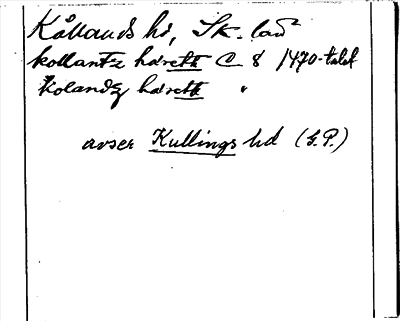 Kållands hd, Sk. län
kollantz hdrett C 8 1470-talet
Kolandz hdrett "
avser Kullings hd (G.P.)